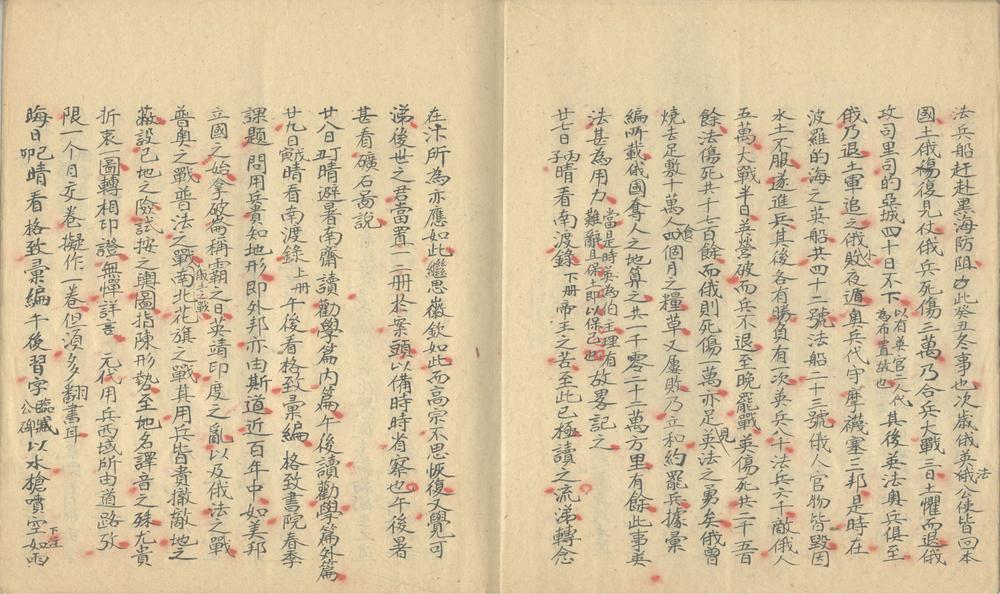 法兵船赶赴黑海防阻 此癸丑冬事也次歲俄英俄法公使皆回本
國土俄複復見仗俄兵死傷三萬乃合兵大戰三日土懼而退俄
攻司里司的亞城四十日不下以有英官二人代為布置故也其後英法奧兵俱至
俄乃退土軍追之俄小敗夜遁奧兵代守摩襪塞二邦是時在
波羅的海之英船共四十二號法船二十三號俄人官物皆毀因
水土不服遂進兵其後各有勝負有一次英兵八千法兵六千敵俄人
五萬大戰半日英營破而兵不退至晚罷戰英傷死共二千五百
餘法傷死共十七百餘而俄則死傷一萬亦足見英法之勇矣俄曾
燒去足敷十萬人四個月之糧草又屢敗乃立和約罷兵據彙
編所載俄國奪人之地算之共一千零二十二萬方里有餘此事英
法甚為用力當是時英為伯主理有難辭且保土即以保己也故畧記之
廿七日丙子晴看南渡錄下冊帝王之苦至此已極讀之流涕轉念
在汴所為亦應如此繼思徽欽如此而高宗不思恢復又覺可
涕後世之君當置一二冊於案頭以備時時省察也午後暑
甚看礦石啚說
廿八日丁丑晴避暑南齋讀勸學篇內篇午後讀勸學篇外篇
廿九日戊寅晴看南渡錄上冊午後看格致彙編 格致書院春季
課題 問用兵貴知地形即外邦亦由斯道近百年中如美邦
立國之始拿破崙稱霸之日英靖印度之亂以及俄法之戰
普奧之戰普法之戰俄土之戰南北北旗之戰其用兵皆貴撤敵地之
蔽設己地之險試按之輿圖指陳形勢至地名譯音之殊尤貴
折衷一圖轉相印證無憚詳言 元代用兵西域所由道路攷
限一个月交卷擬作一卷但須多翻書耳
晦日己卯晴看格致彙編午後習字臨臧公碑以水槍噴空如雨下注